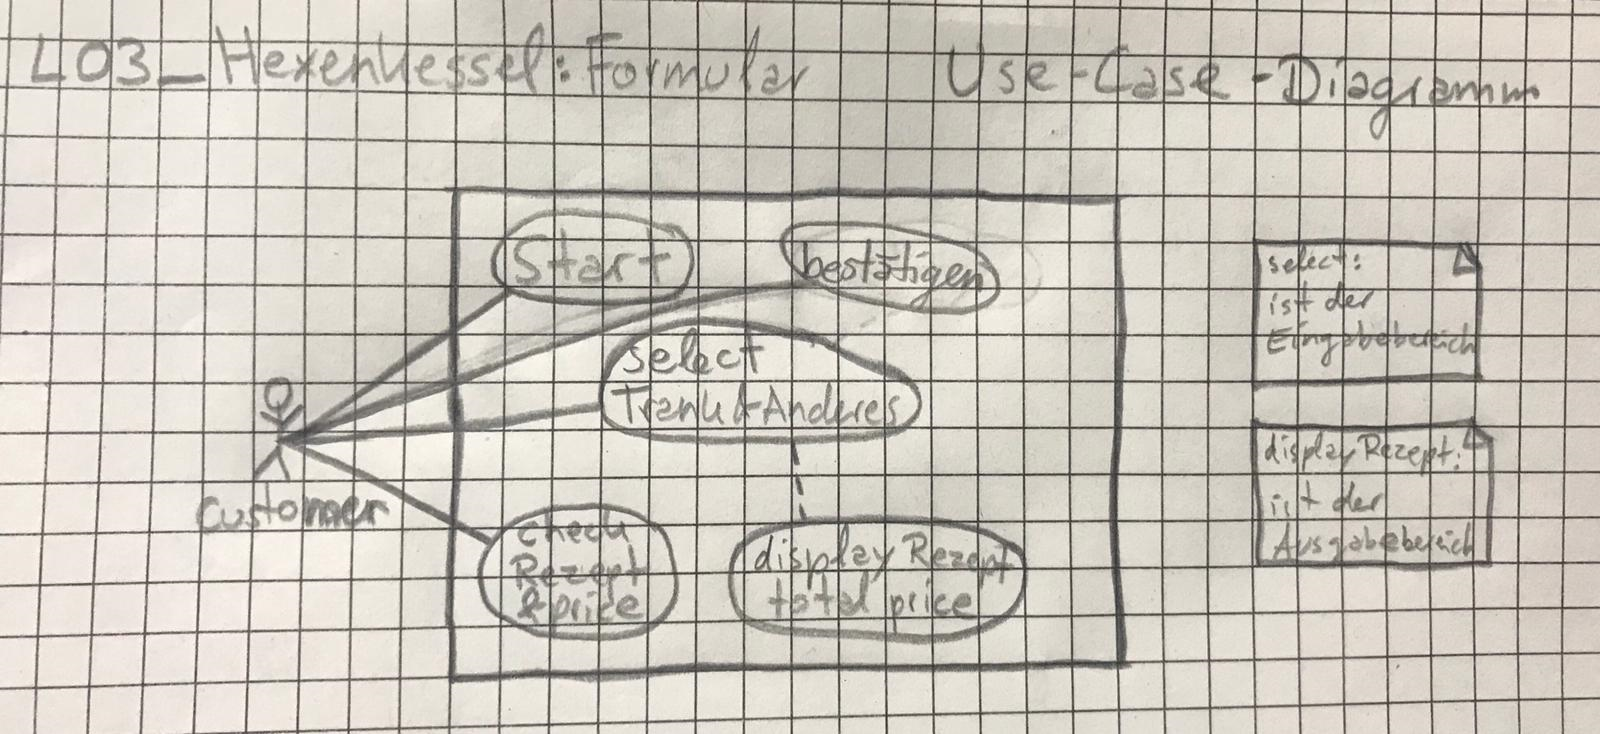 L03_Hexenkessel: Formular Use-Case-Diagramm
Start
bestätigen
select
Trank & Anderes
customer
check
Rezept
& price
display Rezept
total price
select:
ist der
Eingabebereich
display Rezept:
ist der
Ausgabebereich